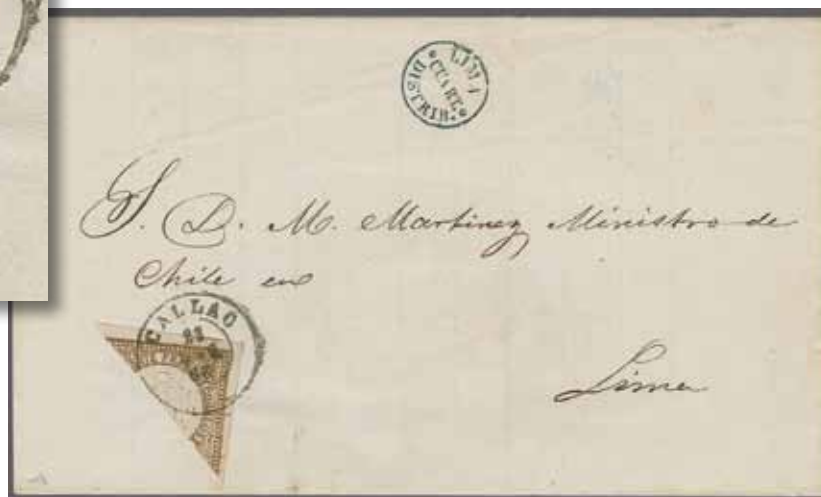 LIMA
CUART.
DISTRIB.
S. D. M. Martinez Ministro de
Chile en
CALLAO
Lima